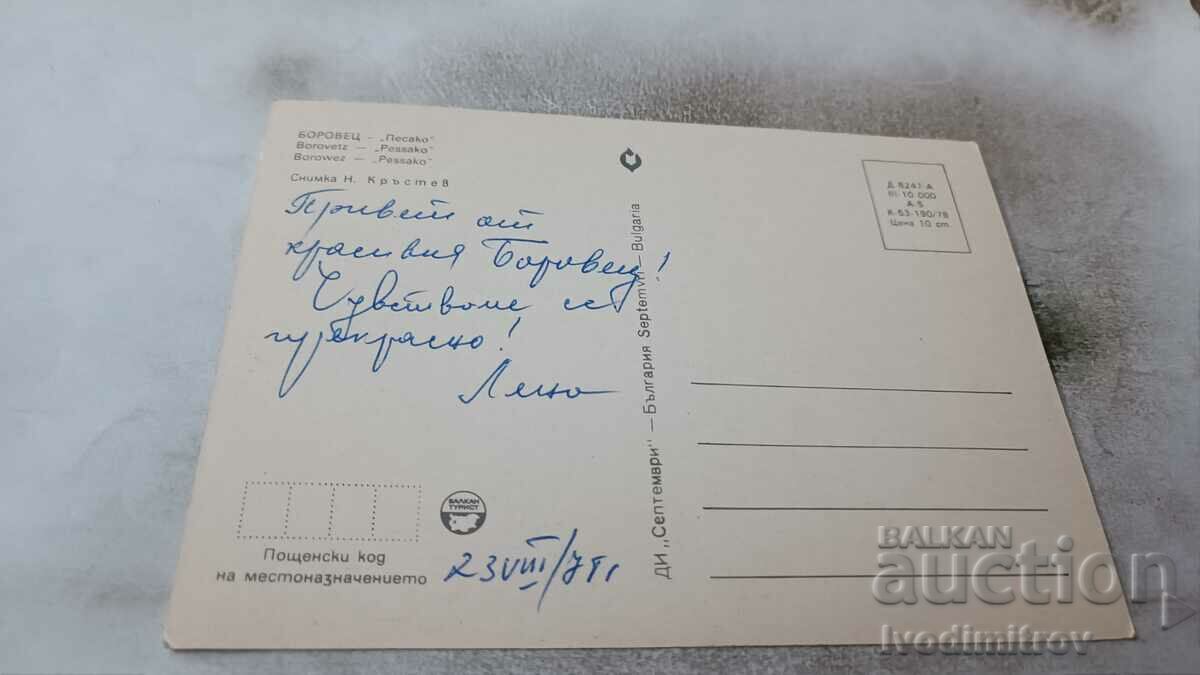 БОРОВЕЦ — „Песако"
Borovetz — „Pessako"
Borowez — „Pessako"
Снимка Н. Кръстев
Привет от
красивия Боровец!
Чувстваме се
прекрасно!
БАЛКАН
ТУРИСТ
Пощенски код
на местоназначението
23 VIII/
ДИ „Септември" — България Septemvri — Bulgaria
Д 8241-А
III-10 000
А-5
К-53-190/78
Цена 10 ст
BALKAN
auction
Ivodimitrov